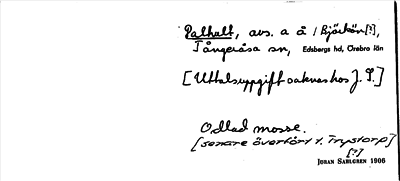 Palhult, avs. a å / Björkön[?],
Tångeråsa sn, Edsbergs hd, Örebro län
[Uttalsuppgift saknas hos J. S.]
Odlad mosse.
[senare överfört t. Trystorp]
[?]
JOHAN SAHLGREN 1906